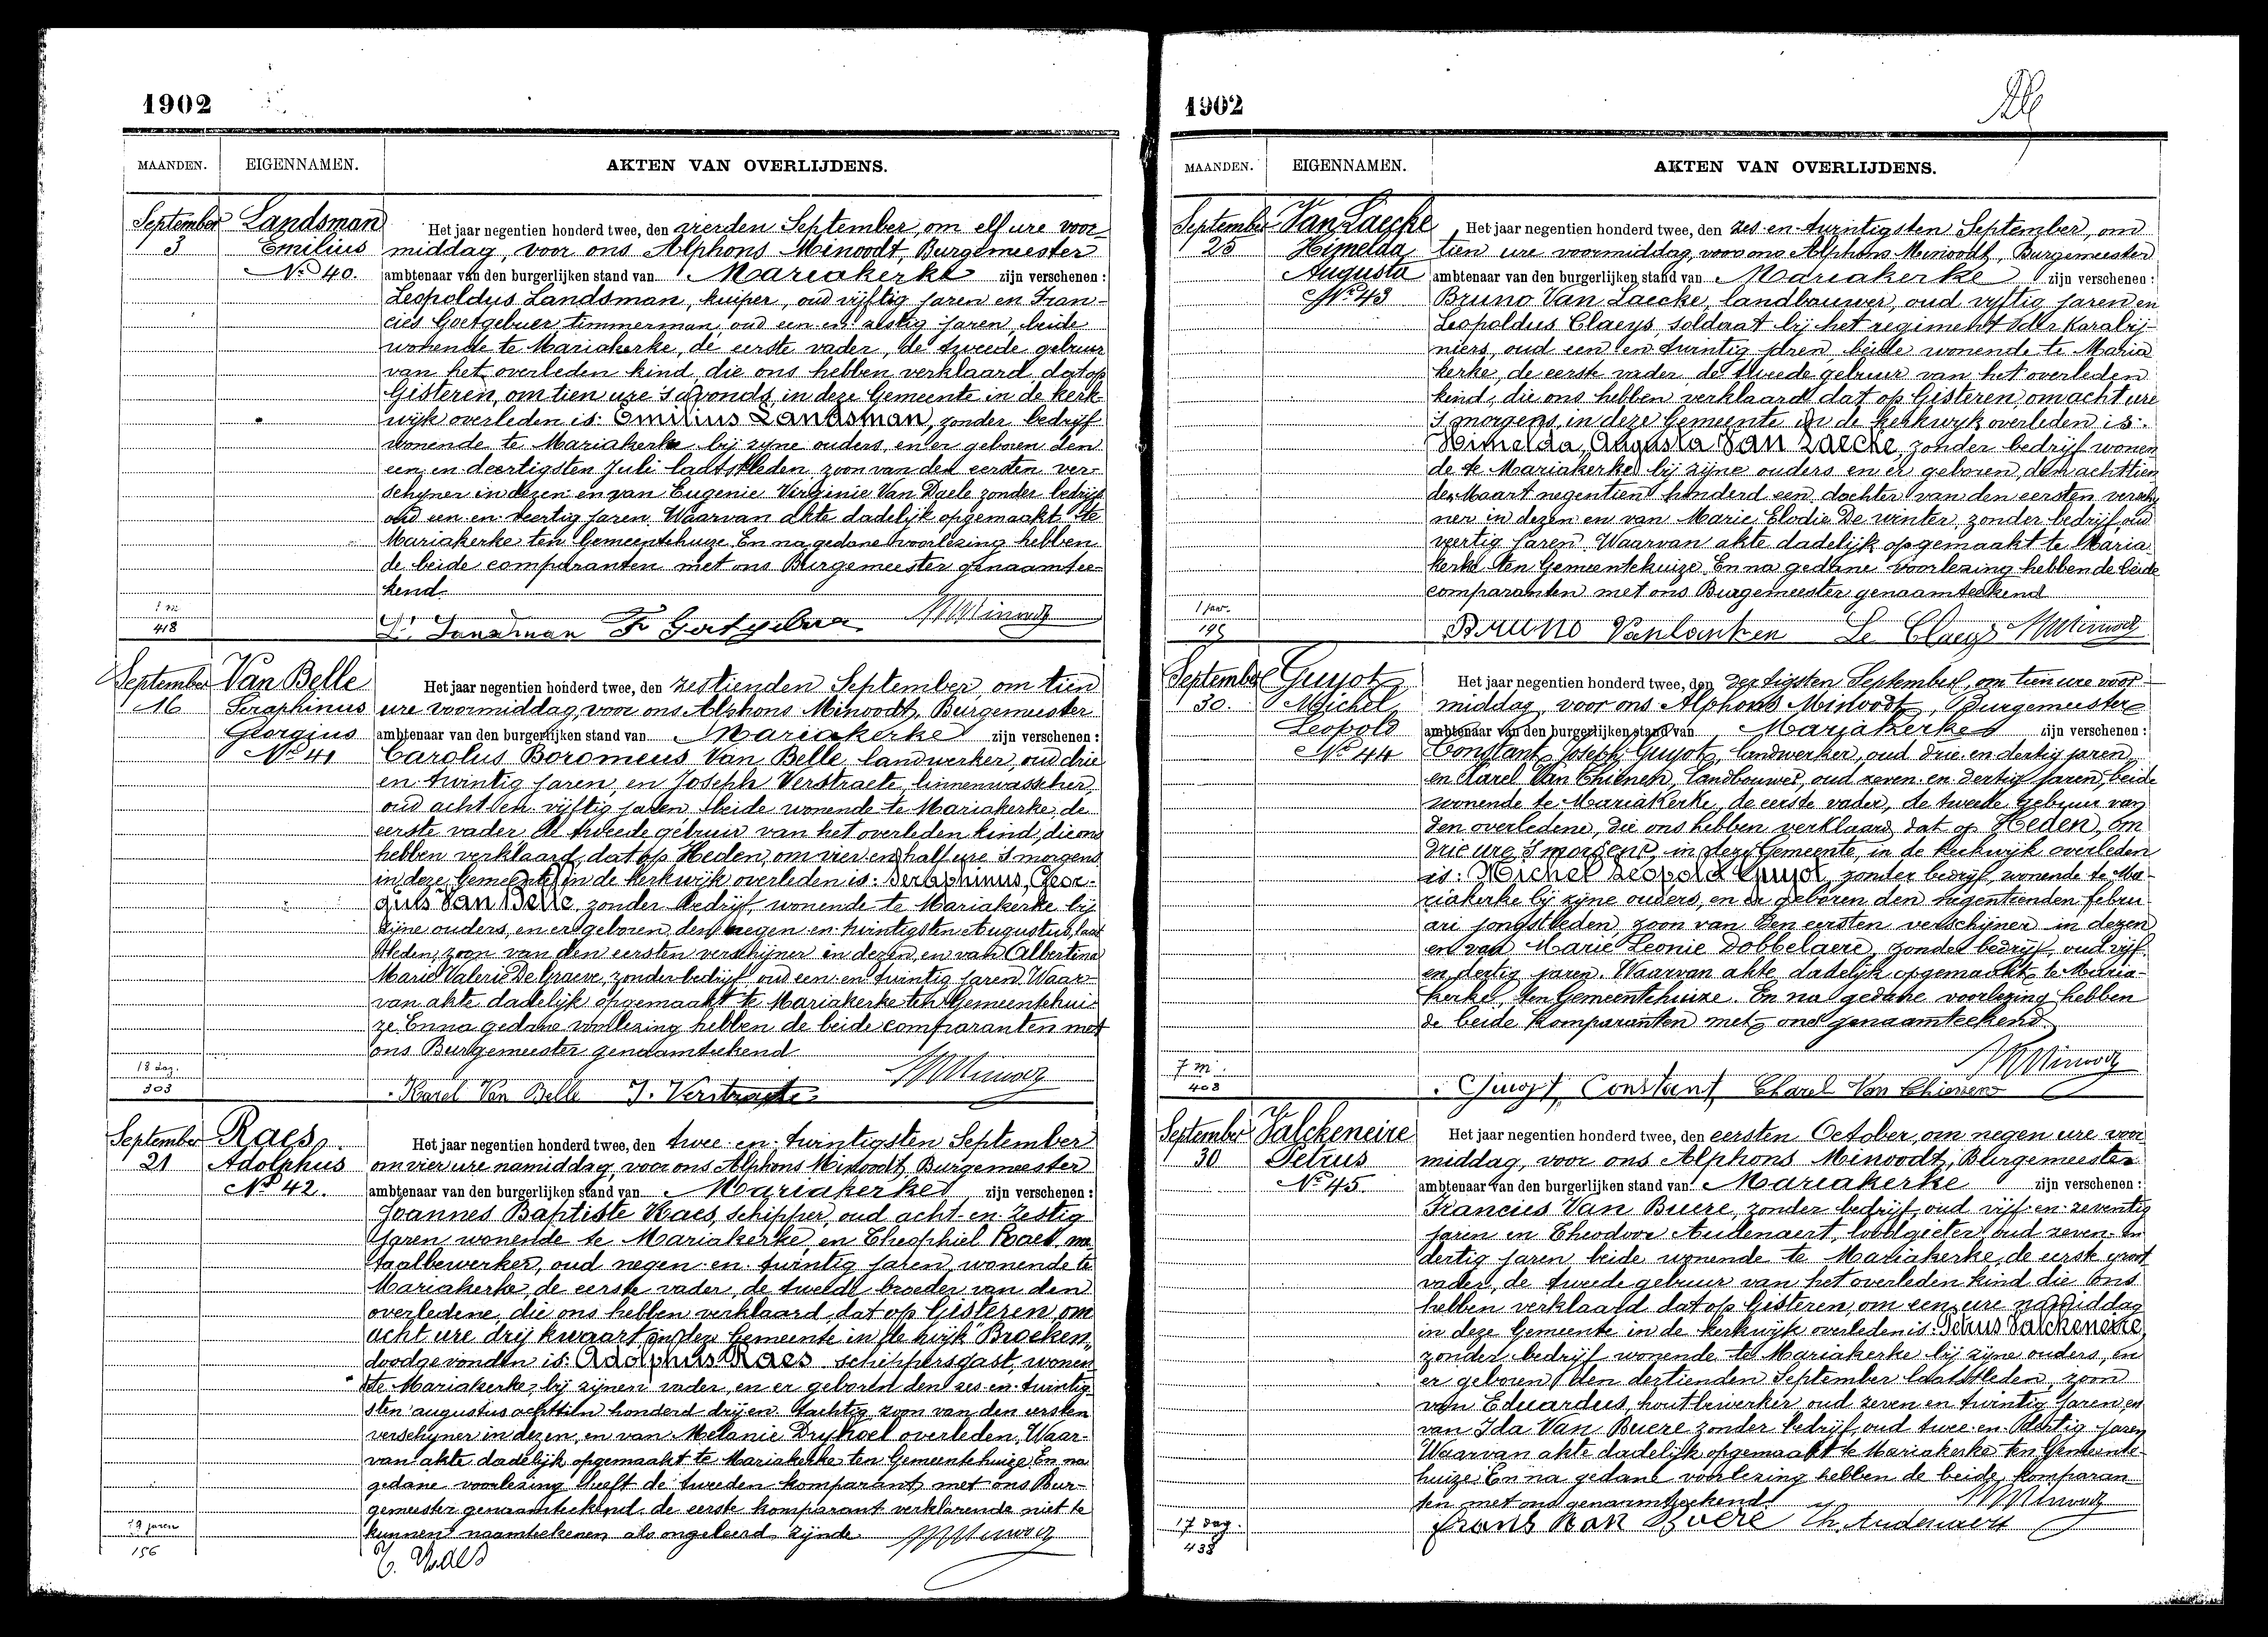 1902
MAANDEN. EIGENNAMEN. AKTEN VAN OVERLIJDENS.
September 3
Landsman
Emilius
No 40.
Het jaar negentien honderd twee, den vierden September, om elf ure voor-
middag, voor ons Alphons Minoodt, Burgemeester
ambtenaar van den burgerlijken stand van Mariakerke zijn verschenen:
Leopoldus Landsman, kuiper, oud vijftig jaren en Fran-
cies Goetgebuer timmerman, oud een en zestig jaren, beide
wonende te Mariakerke, de eerste vader, de tweede gebuur
van het overleden kind, die ons hebben verklaard dat op
Gisteren, om tien ure 's avonds, in deze Gemeente in de kerk-
wijk overleden is: Emilius Landsman, zonder bedrijf
wonende te Mariakerke bij zijne ouders, en er geboren den
een en dertigsten Juli laatstleden, zoon van den eersten ver-
schijner in dezen en van Eugenie Virginie Van Daele zonder bedrijf
oud een en veertig jaren. Waarvan akte dadelijk opgemaakt te
Mariakerke ten Gemeentehuize. En na gedane voorlezing hebben
de beide comparanten met ons Burgemeester genaamtee-
kend.
1 m
418
L. Landsman F. Goetgebuer AMinoodt
September 16
Van Belle
Seraphinus
Georgius
No 41
Het jaar negentien honderd twee, den zestienden September, om tien
ure voormiddag, voor ons Alphons Minoodt, Burgemeester
ambtenaar van den burgerlijken stand van Mariakerke zijn verschenen:
Carolus Boromeus Van Belle, landwerker, oud drie
en twintig jaren, en Joseph Verstraete, linnenwasscher,
oud acht en vijftig jaren, beide wonende te Mariakerke, de
eerste vader, de tweede gebuur van het overleden kind, die ons
hebben verklaard, dat op Heden, om vier en half ure 's morgens
in deze Gemeente in de kerkwijk overleden is: Seraphinus, Geor-
gius Van Belle, zonder bedrijf, wonende te Mariakerke bij
zijne ouders, en er geboren, den negen en twintigsten Augustus, laatst
leden, zoon van den eersten verschijner in dezen, en van Albertina
Marie Valerie De Graeve, zonder bedrijf, oud een en twintig jaren. Waar-
van akte dadelijk opgemaakt te Mariakerke ten Gemeentehui-
ze. En na gedane voorlezing hebben de beide comparanten met
ons Burgemeester genaamteekend
18 dag.
303
Karel Van Belle J. Verstraete AMinoodt
September 21
Raes
Adolphus
No 42.
Het jaar negentien honderd twee, den twee en twintigsten September
om vier ure namiddag, voor ons Alphons Minoodt, Burgemeester
ambtenaar van den burgerlijken stand van Mariakerke zijn verschenen:
Joannes Baptiste Raes, schipper, oud acht en zestig
jaren wonende te Mariakerke en Theophiel Raes, me
taalbewerker, oud negen en twintig jaren, wonende te
Mariakerke, de eerste vader, de tweede broeder van den
overledene, die ons hebben verklaard, dat op Gisteren, om
acht ure drij kwaart in deze Gemeente in de wijk "Broeken"
doodgevonden is: Adolphus Raes schippersgast, wonen
de te Mariakerke, bij zijnen vader, en er geboren den zes en twintig
sten augustus achttien honderd drij en tachtig zoon van den eersten
verschijner in dezen, en van Melanie Dryhoel overleden. Waar-
van akte dadelijk opgemaakt te Mariakerke ten Gemeentehuize En na
gedane voorlezing heeft de tweeden komparant met ons Bur-
gemeester genaamteekend, de eerste komparant verklarende niet te
kunnen naamteekenen als ongeleerd zijnde AMinoodt
19 jaren
156
T. Raes
1902
MAANDEN. EIGENNAMEN. AKTEN VAN OVERLIJDENS.
September 25
Van Laecke
Himelda
Augusta
No 43
Het jaar negentien honderd twee, den zes en twintigsten September, om
tien ure voormiddag, voor ons Alphons Minoodt, Burgemeester
ambtenaar van den burgerlijken stand van Mariakerke zijn verschenen:
Bruno Van Laecke, landbouwer, oud vijftig jaren en
Leopoldus Claeys, soldaat bij het regiment der Karabij-
niers, oud een en twintig jaren, beide wonende te Maria
kerke, de eerste vader, de tweede gebuur van het overleden
kind, die ons hebben verklaard dat op Gisteren, om acht ure
's morgens, in deze Gemeente in de kerkwijk overleden is:
Himelda, Augusta Van Laecke, zonder bedrijf wonen
de te Mariakerke bij zijne ouders en er geboren, den achttien
den Maart negentien honderd een, dochter van den eersten verschij
ner in dezen en van Marie Elodie De winter, zonder bedrijf, oud
veertig jaren. Waarvan akte dadelijk opgemaakt te Maria
kerke ten Gemeentehuize. En na gedane voorlezing hebben de beide
comparanten met ons Burgemeester genaamteekend
1 jaar.
195
Bruno Vanlaeken Le Claeys AMinoodt
September 30.
Guyot
Michel
Leopold
No 44
Het jaar negentien honderd twee, den dertigsten September, om tien ure voor-
middag, voor ons Alphons Minoodt, Burgemeester
ambtenaar van den burgerlijken stand van Mariakerke zijn verschenen:
Constant Joseph Guyot, landwerker, oud drie en dertig jaren,
en Karel Van Thienen, landbouwer, oud zeven en dertig jaren, beide
wonende te Mariakerke, de eerste vader, de tweede gebuur van
den overledene, die ons hebben verklaard dat op Heden, om
drie ure 's morgens, in deze Gemeente, in de kerkwijk overleden
is: Michel Leopold Guyot, zonder bedrijf, wonende te Ma-
riakerke bij zijne ouders, en er geboren den negentienden febru-
ari jongstleden, zoon van den eersten verschijner in dezen
en van Marie Leonie Dobbelaere, zonder bedrijf, oud vijf
en dertig jaren. Waarvan akte, dadelijk opgemaakt te Maria-
kerke, ten Gemeentehuize. En na gedane voorlezing hebben
de beide komparanten met ons genaamteekend
7 m.
408
AMinoodt
Guyot Constant Charel Van Thienen
September 30
Valckeneire
Petrus
No 45.
Het jaar negentien honderd twee, den eersten October, om negen ure voor
middag, voor ons Alphons Minoodt, Burgemeester
ambtenaar van den burgerlijken stand van Mariakerke zijn verschenen:
Francies Van Buere, zonder bedrijf, oud vijf en zeventig
jaren en Theodoor Audenaert, loodgieter, oud zeven en
dertig jaren, beide wonende te Mariakerke, de eerste groot
vader, de tweede gebuur van het overleden kind die ons
hebben verklaard dat op Gisteren, om een ure namiddag
in deze Gemeente in de kerkwijk overleden is: Petrus Valckeneire,
zonder bedrijf wonende te Mariakerke bij zijne ouders, en
er geboren den dertienden September laatstleden, zoon
van Eduardus, houtbewerker oud zeven en twintig jaren en
van Ida Van Buere zonder bedrijf, oud twee en dertig jaren
Waarvan akte dadelijk opgemaakt te Mariakerke ten Gemeente
huize. En na gedane voorlezing hebben de beide komparan
ten met ons genaamteekend. AMinoodt
17 dag.
438
frans Van Buere Th. Audenaert